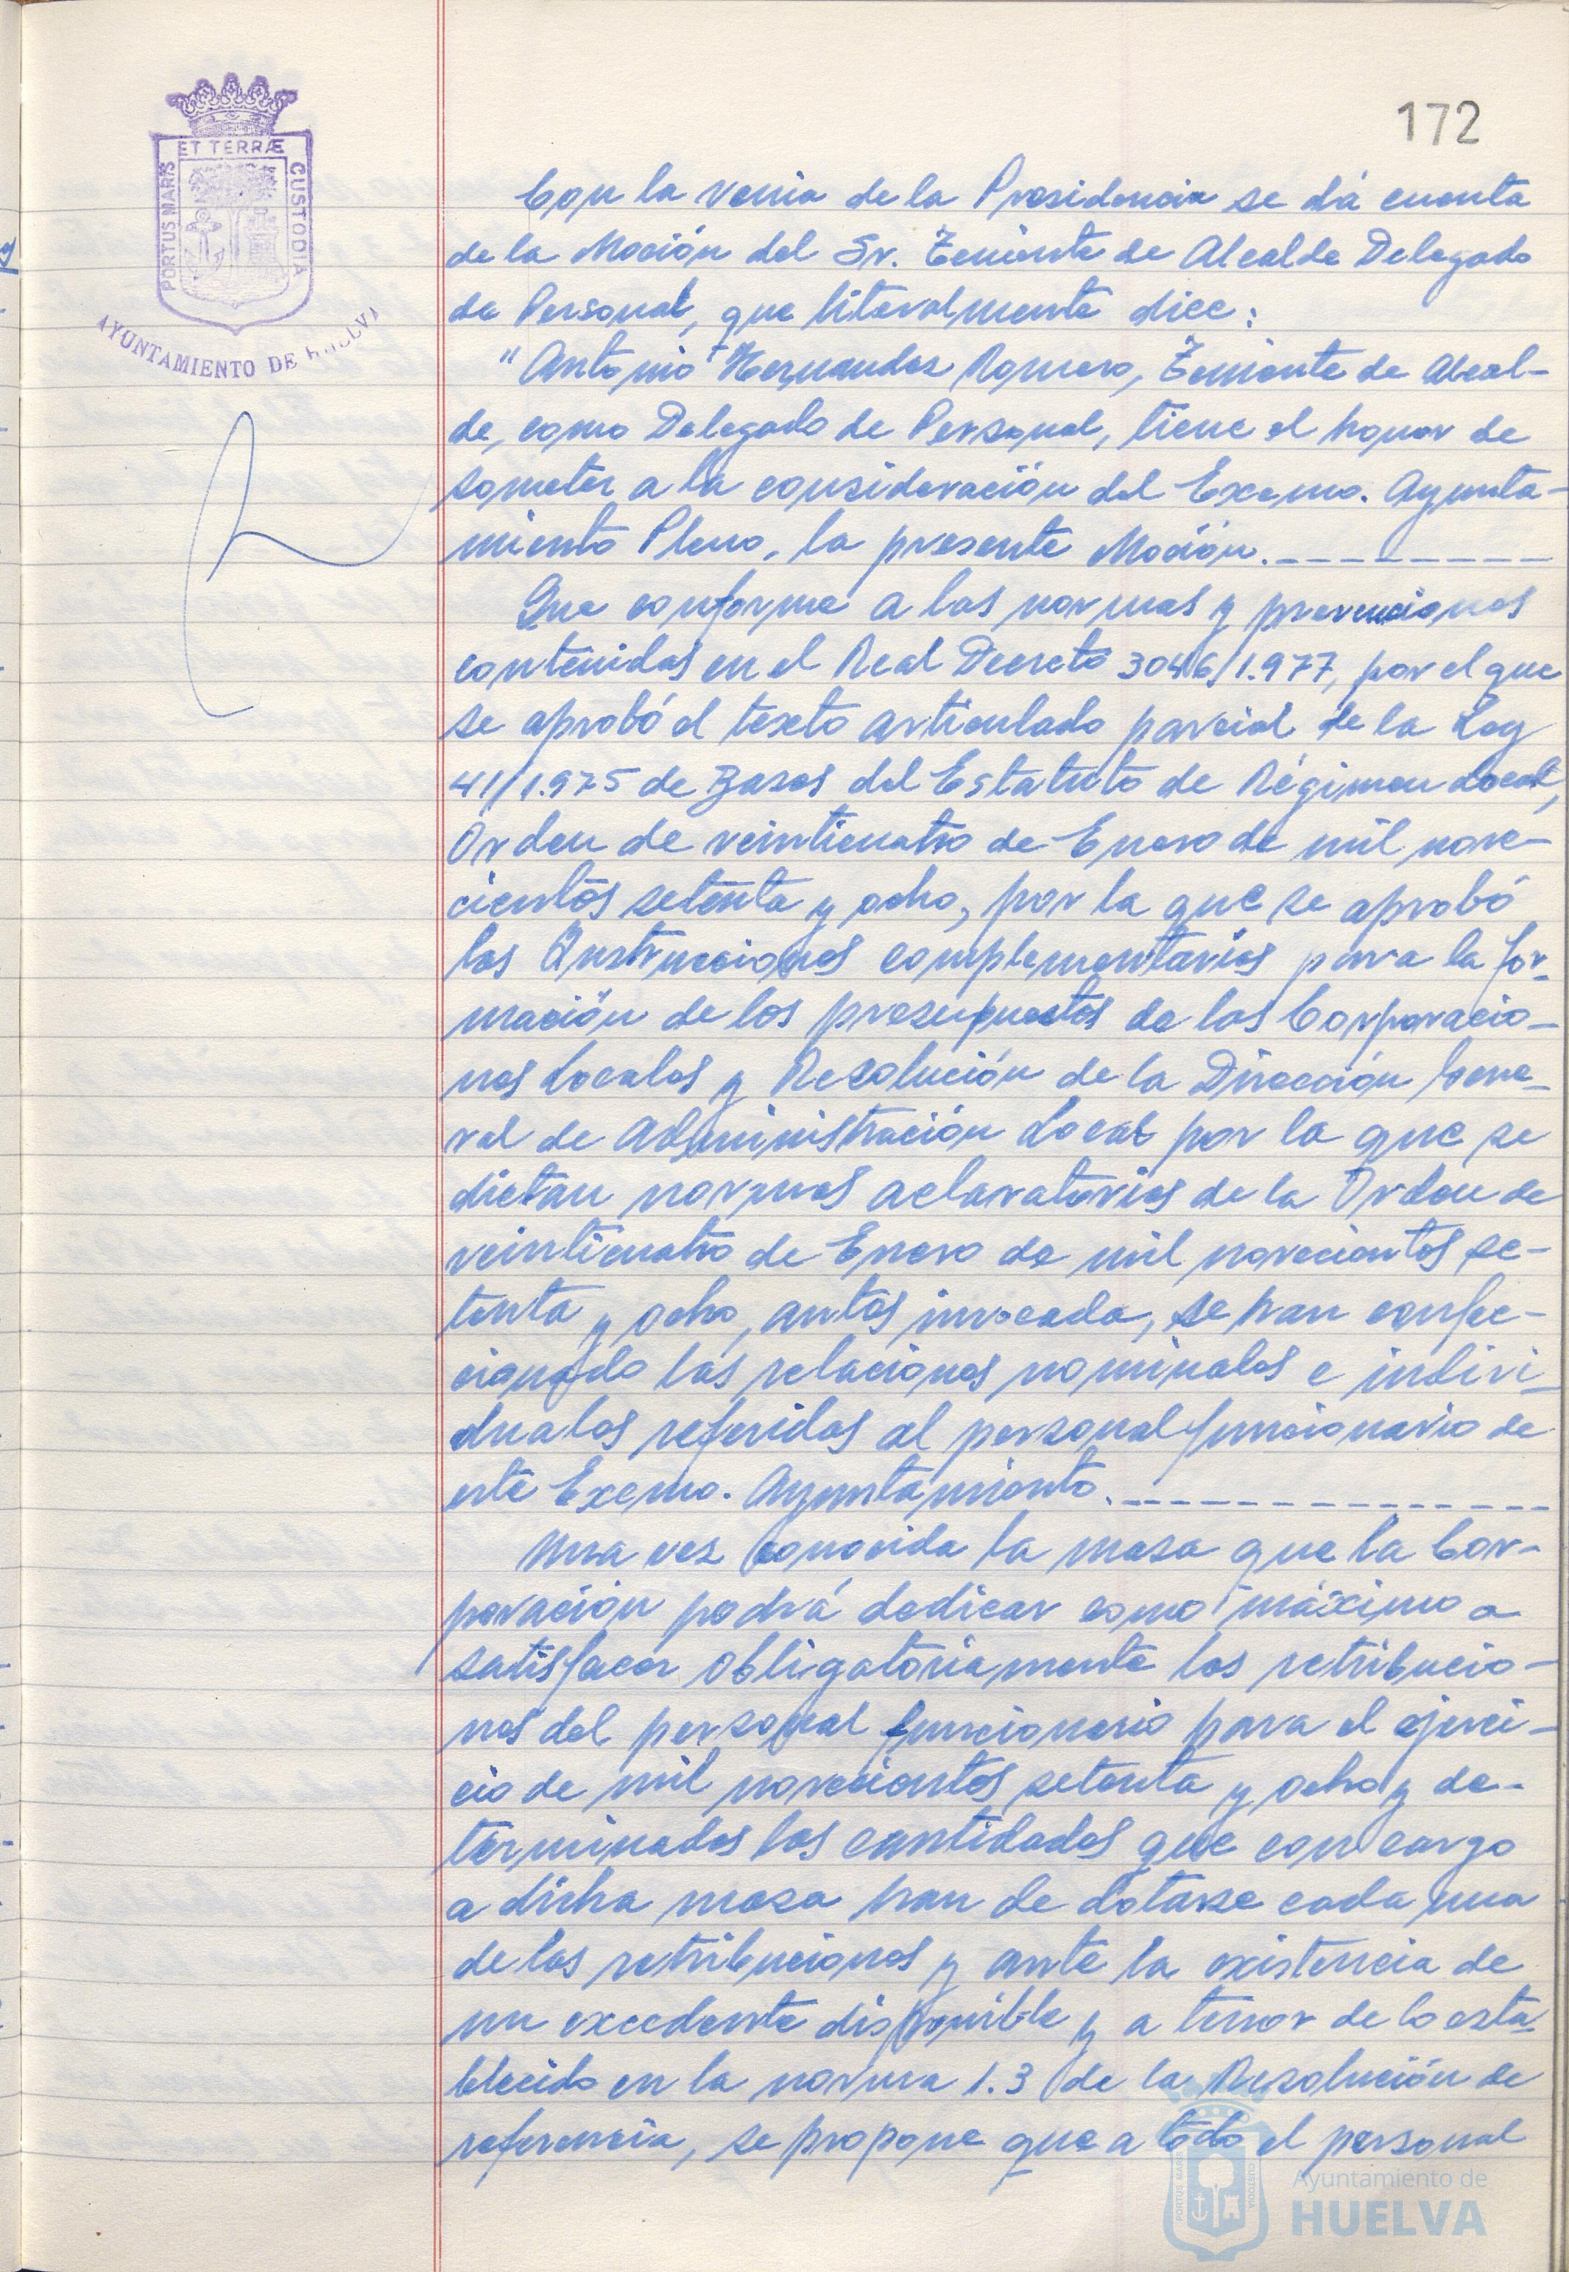 172
ET TERRÆ
PORTUS MARIS
CUSTODIA
AYUNTAMIENTO DE HUELVA
Con la venia de la Presidencia se dá cuenta
de la Moción del Sr. Teniente de Alcalde Delegado
de Personal, que literalmente dice:
"Antonio Hernandez Romero, Teniente de Alcal-
de, como Delegado de Personal, tiene el honor de
someter a la consideración del Excmo. Ayunta-
miento Pleno, la presente Moción.---------
Que conforme a las normas y prevenciones
contenidas en el Real Decreto 3046/1.977, por el que
se aprobó el texto articulado parcial de la Ley
41/1.975 de Bases del Estatuto de Régimen Local,
Orden de veinticuatro de Enero de mil nove-
cientos setenta y ocho, por la que se aprobó
las Instrucciones complementarias para la for-
mación de los presupuestos de las Corporacio-
nes Locales y Resolución de la Dirección Gene-
ral de Administración Local por la que se
dictan normas aclaratorias de la Orden de
veinticuatro de Enero de mil novecientos se-
tenta y ocho, antes invocada, se han confec-
cionado las relaciones nominales e indivi-
duales referidas al personal funcionario de
este Excmo. Ayuntamiento.--------------
Una vez conocida la masa que la Cor-
poración podrá dedicar como máximo a
satisfacer obligatoriamente las retribucio-
nes del personal funcionario para el ejerci-
cio de mil novecientos setenta y ocho y de-
terminados las cantidades que con cargo
a dicha masa han de dotarse cada una
de las retribuciones y ante la existencia de
un excedente disponible y a tenor de lo esta-
blecido en la norma 1.3 de la Resolución de
referencia, se propone que a todo el personal
Ayuntamiento de
HUELVA